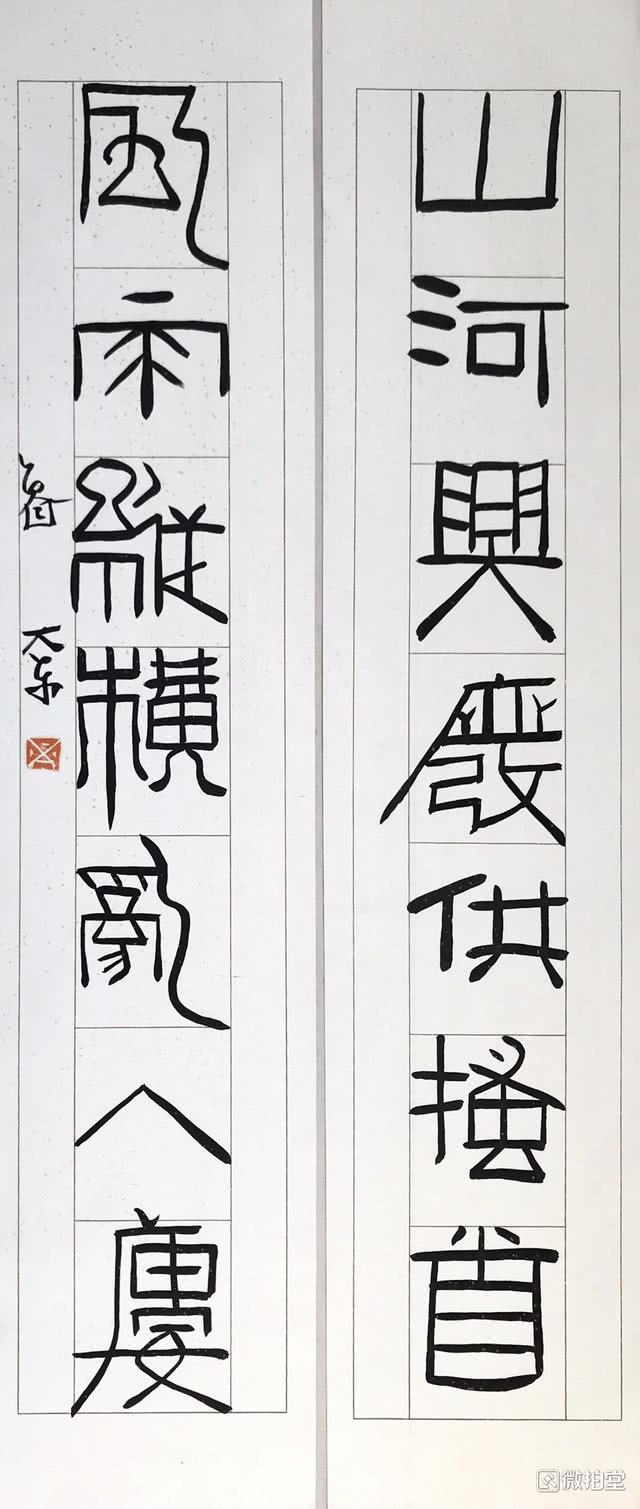 山河興廢供搔首
風雨縱橫亂入廔
魯大东
微拍堂